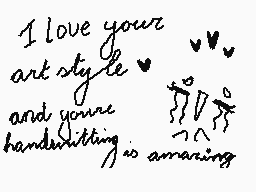 I love your
art style ♥
and youre
handwritting
is amazing